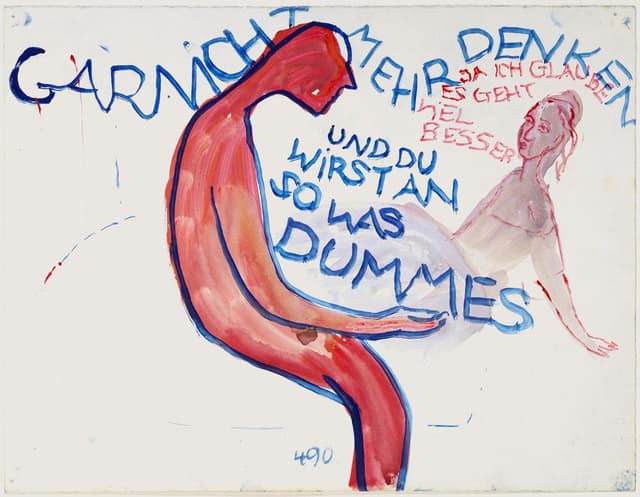 GARNICHT MEHR DENKEN
JA ICH GLAUBE
ES GEHT
VIEL
BESSER
UND DU
WIRST AN
SO WAS
DUMMES
490